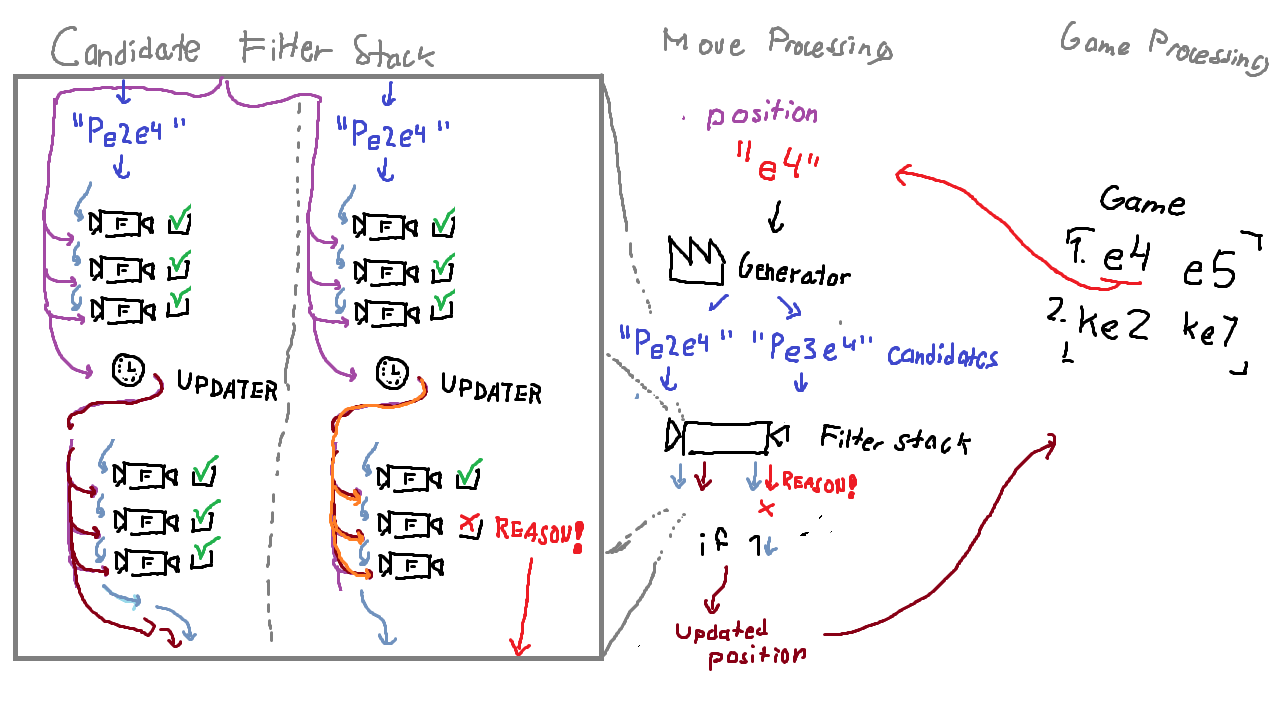 Candidate Filter Stack
"Pe2e4"
"Pe2e4"
F
F
F
F
F
F
UPDATER
UPDATER
F
F
F
F
F REASON!
F
Move Processing
position
"e4"
Generator
"Pe2e4" "Pe3e4" candidates
Filter stack
REASON!
x
if 1
Updated
position
Game Processing
Game
1. e4 e5
2. ke2 ke7